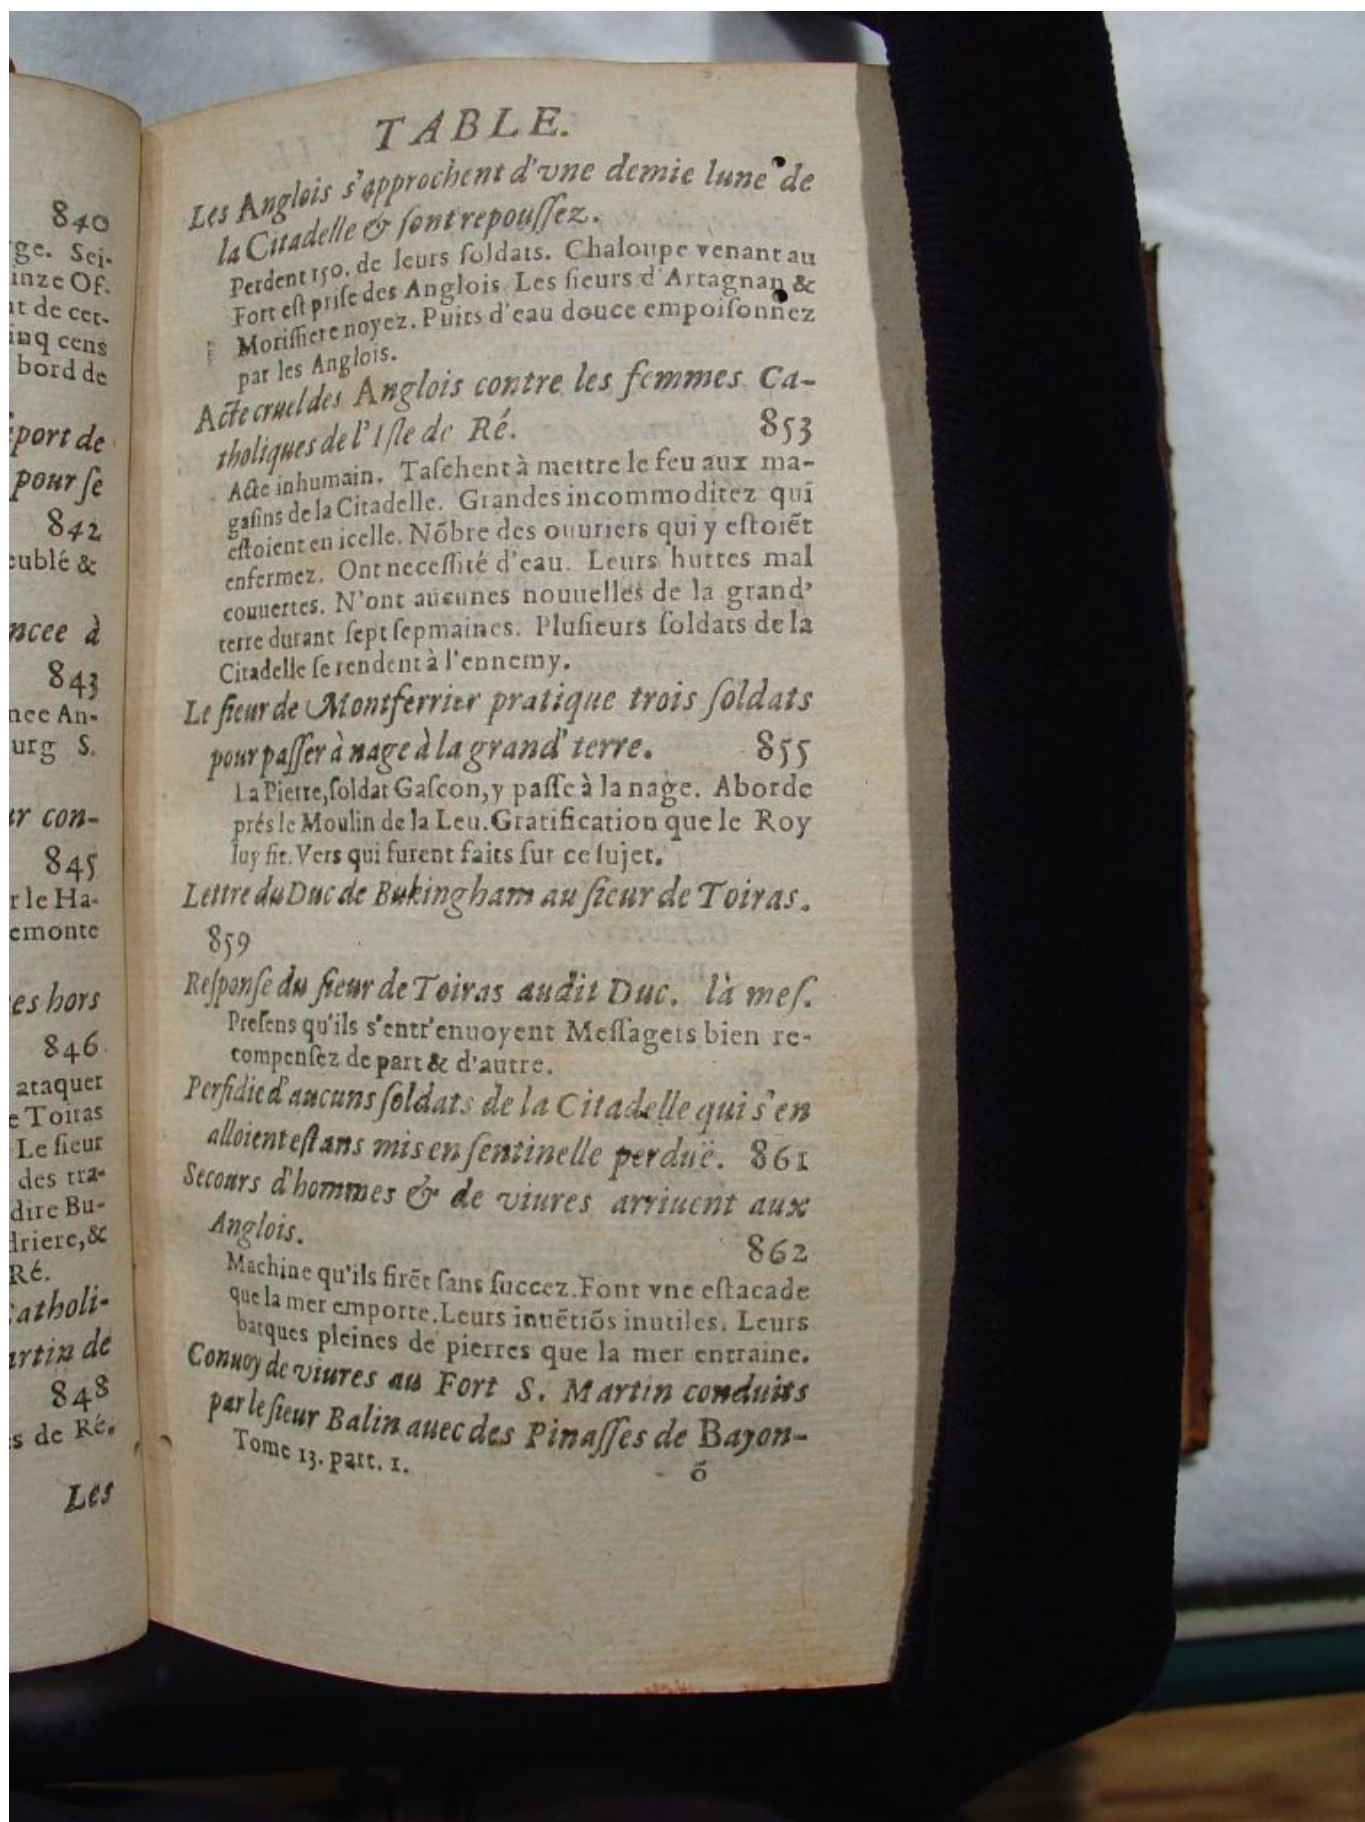 840
ge. Sei-
inze Of-
t de cer-
inq cens
bord de
port de
pour ſe
842
eublé &
ncee à
843
nee An-
urg S.
r con-
845
r le Ha-
emonte
es hors
846
ataquer
e Toiras
Le ſieur
des tra-
dire Bu-
driere, &
Ré.
atholi-
artin de
848
s de Ré.
Les
TABLE.
Les Anglois s'approchent d'vne demie lune de
la Citadelle & ſont repouſſez.
Perdent 150. de leurs ſoldats. Chaloupe venant au
Fort eſt priſe des Anglois. Les ſieurs d'Artagnan &
Moriſſiere noyez. Puits d'eau douce empoiſonnez
par les Anglois.
Acte cruel des Anglois contre les femmes Ca-
tholiques de l'Iſle de Ré. 853
Acte inhumain. Taſchent à mettre le feu aux ma-
gaſins de la Citadelle. Grandes incommoditez qui
eſtoient en icelle. Nõbre des ouuriers qui y eſtoiẽt
enfermez. Ont neceſſité d'eau. Leurs huttes mal
couuertes. N'ont aucunes nouuelles de la grand'
terre durant ſept ſepmaines. Pluſieurs ſoldats de la
Citadelle ſe rendent à l'ennemy.
Le ſieur de Montferrier pratique trois ſoldats
pour paſſer à nage à la grand' terre. 855
La Pierre, ſoldat Gaſcon, y paſſe à la nage. Aborde
prés le Moulin de la Leu. Gratification que le Roy
luy fit. Vers qui furent faits ſur ce ſujet.
Lettre du Duc de Bukingham au ſieur de Toiras.
859
Reſponſe du ſieur de Toiras audit Duc. là meſ.
Preſens qu'ils s'entr'enuoyent Meſſagers bien re-
compenſez de part & d'autre.
Perfidie d'aucuns ſoldats de la Citadelle qui s'en
alloient eſtans mis en ſentinelle perduë. 861
Secours d'hommes & de viures arriuent aux
Anglois. 862
Machine qu'ils firẽt ſans ſuccez. Font vne eſtacade
que la mer emporte. Leurs inuẽtiõs inutiles. Leurs
barques pleines de pierres que la mer entraine.
Conuoy de viures au Fort S. Martin conduits
par le ſieur Balin auec des Pinaſſes de Bayon-
Tome 13. part. 1. õ